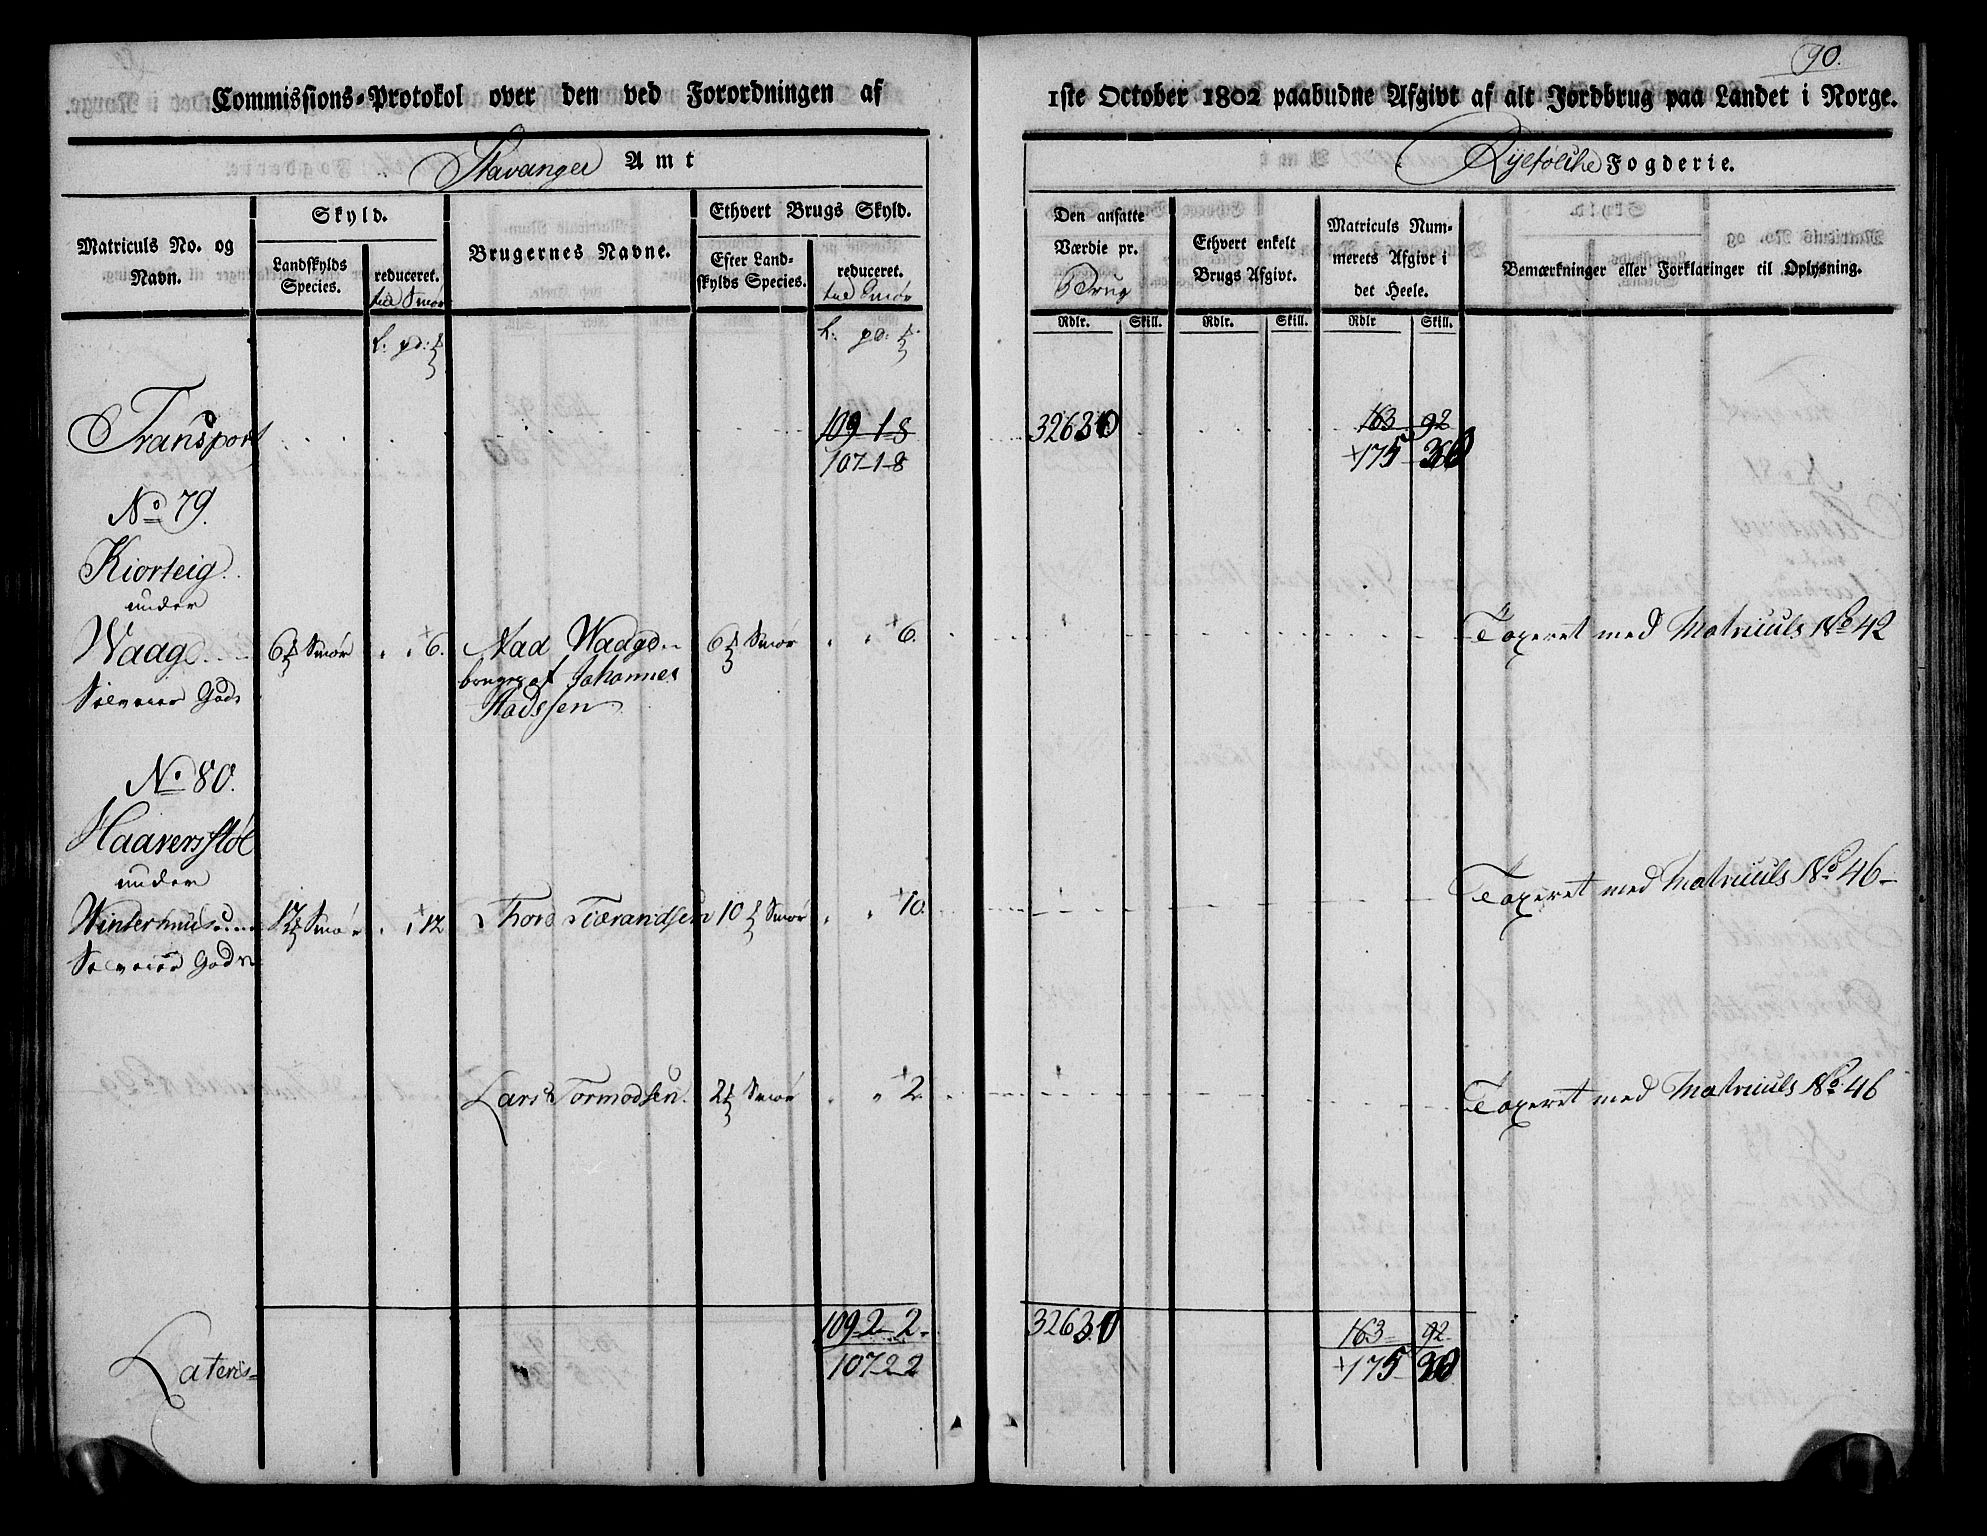 90.
Commissions-Protokol over den ved Forordningen af 1ste October 1802 paabudne Afgivt af alt Jordbrug paa Landet i Norge.
Stavanger Amt
Ryefølche Fogderie.
Matriculs No. og Navn.
Skyld.
Landskylds Species.
reduceret.
til Smør
Brugernes Navne.
Ethvert Brugs Skyld.
Efter Landskylds Species.
reduceret.
til Smør
Den ansatte Værdie pr.
Brug
Ethvert enkelt Brugs Afgivt.
Matriculs Nummerets Afgivt i det Heele.
Bemærkninger eller Forklaringer til Oplysning.
Rdlr. Skill. Rdlr. Skill. Rdlr Skill.
Transport 109-1-8 32630 163 92
107-1-8 +175 30
No 79.
Kiorteig
under
Waage 6 Smør 6. Aad Waage 6 Smør 6. Taxeret med Matriculs No 42
Selveier Gods bruges af Johannes
Aadssen
No 80.
Haaversstøl
under
12 Smør 12 Thore Tærandsen 10 Smør 10. Taxeret med Matriculs No 46
Selveier Gods
Lars Tormodsen. 2 Smør 2. Taxeret med Matriculs No 46
109-2-2 32630 163 92
Lateris 107-2-2 +175 30